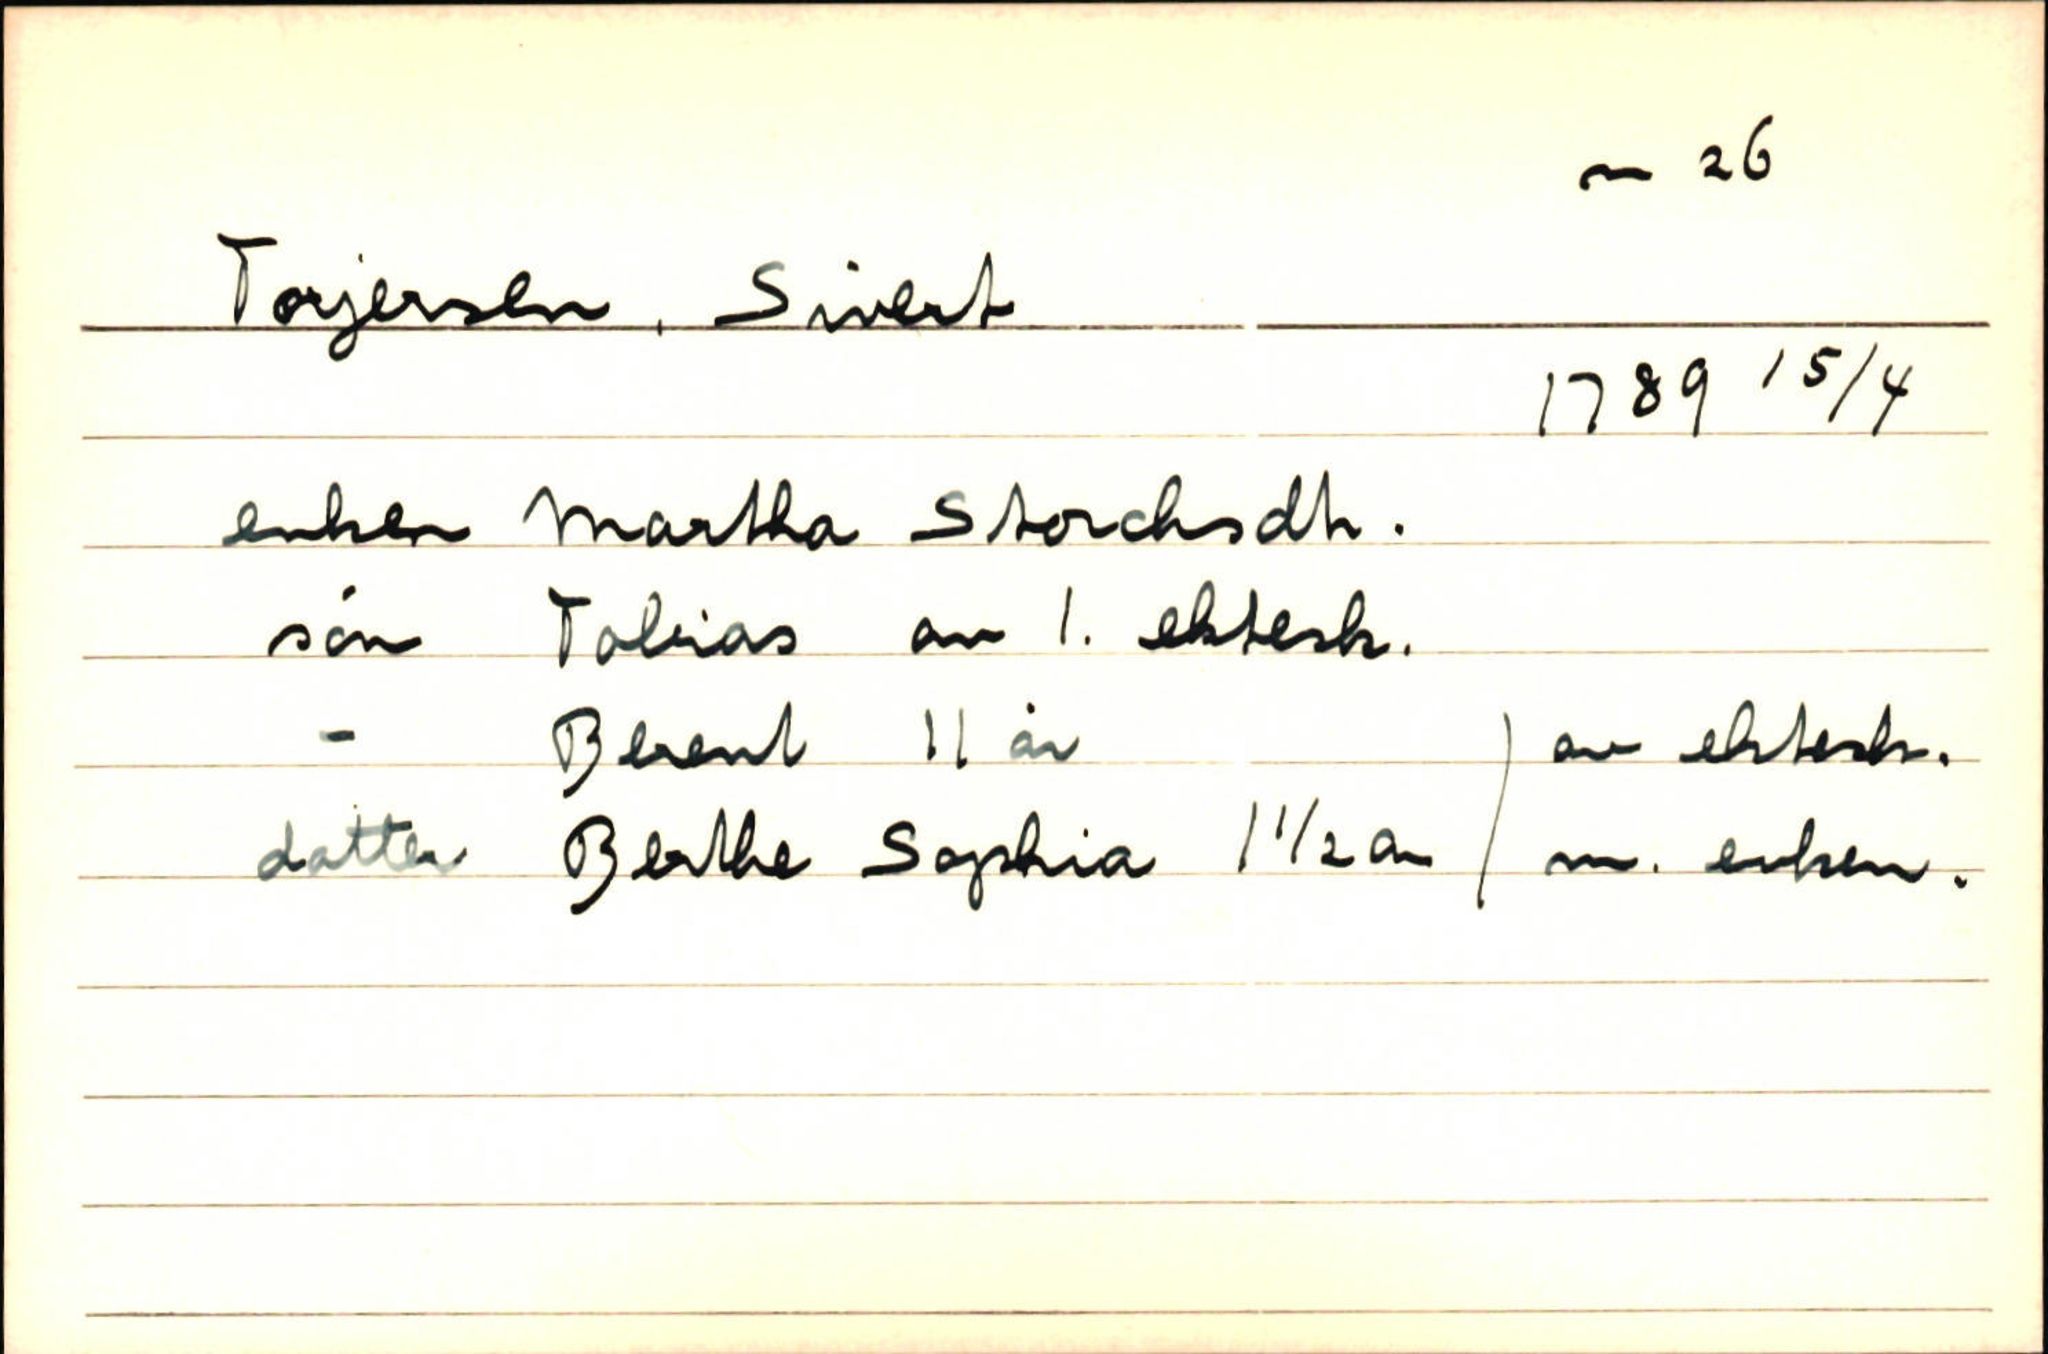 26
Torjersen, Sivert
1789 15/4
enken Martha Storchsdtr.
són Tobias av 1. ektesk.
- Berent 11 år / av ektesk.
datter Berthe Sophia 1 1/2 år / m. enken.